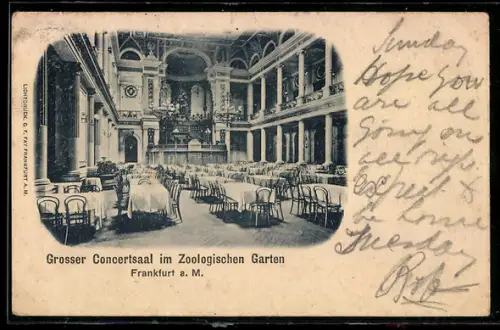 LICHTDRUCK G. F. FAY FRANKFURT A. M.
Grosser Concertsaal im Zoologischen Garten
Frankfurt a. M.
Sunday
Hope you
are all
Going on
all right
Expect to
be home
Tuesday
Rob